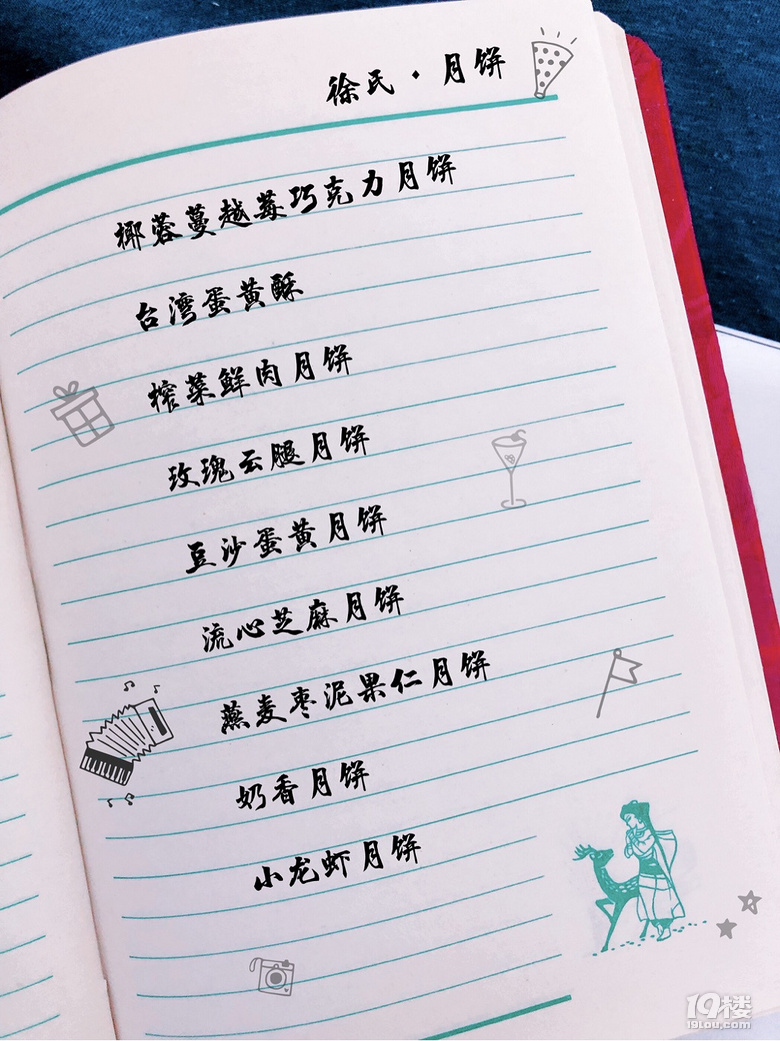 徐民·月饼
椰蓉蔓越莓巧克力月饼
台湾蛋黄酥
榨菜鲜肉月饼
玫瑰云腿月饼
豆沙蛋黄月饼
流心芝麻月饼
燕麦枣泥果仁月饼
奶香月饼
小龙虾月饼
19楼
19lou.com